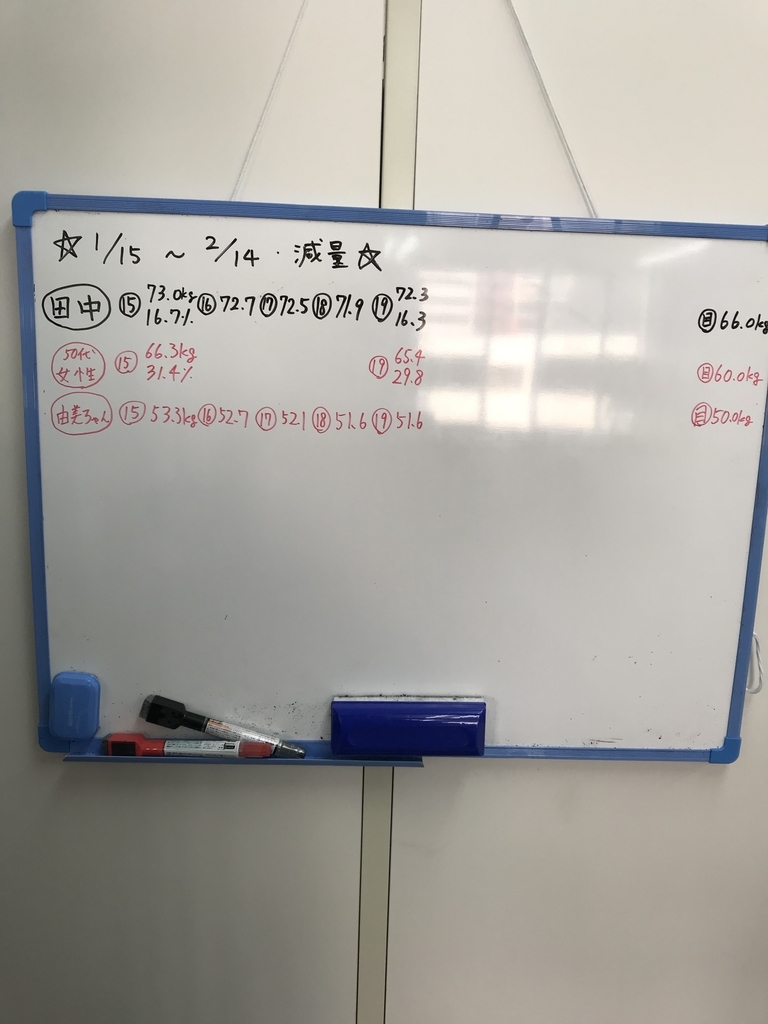 ☆ 1/15 ~ 2/14・減量☆
田中 ⑮ 73.0kg 16.7% ⑯ 72.7 ⑰ 72.5 ⑱ 71.9 ⑲ 72.3 16.3 目 66.0kg
50代女性 ⑮ 66.3kg 31.4% ⑲ 65.4 29.8 目 60.0kg
由美ちゃん ⑮ 53.3kg ⑯ 52.7 ⑰ 52.1 ⑱ 51.6 ⑲ 51.6 目 50.0kg